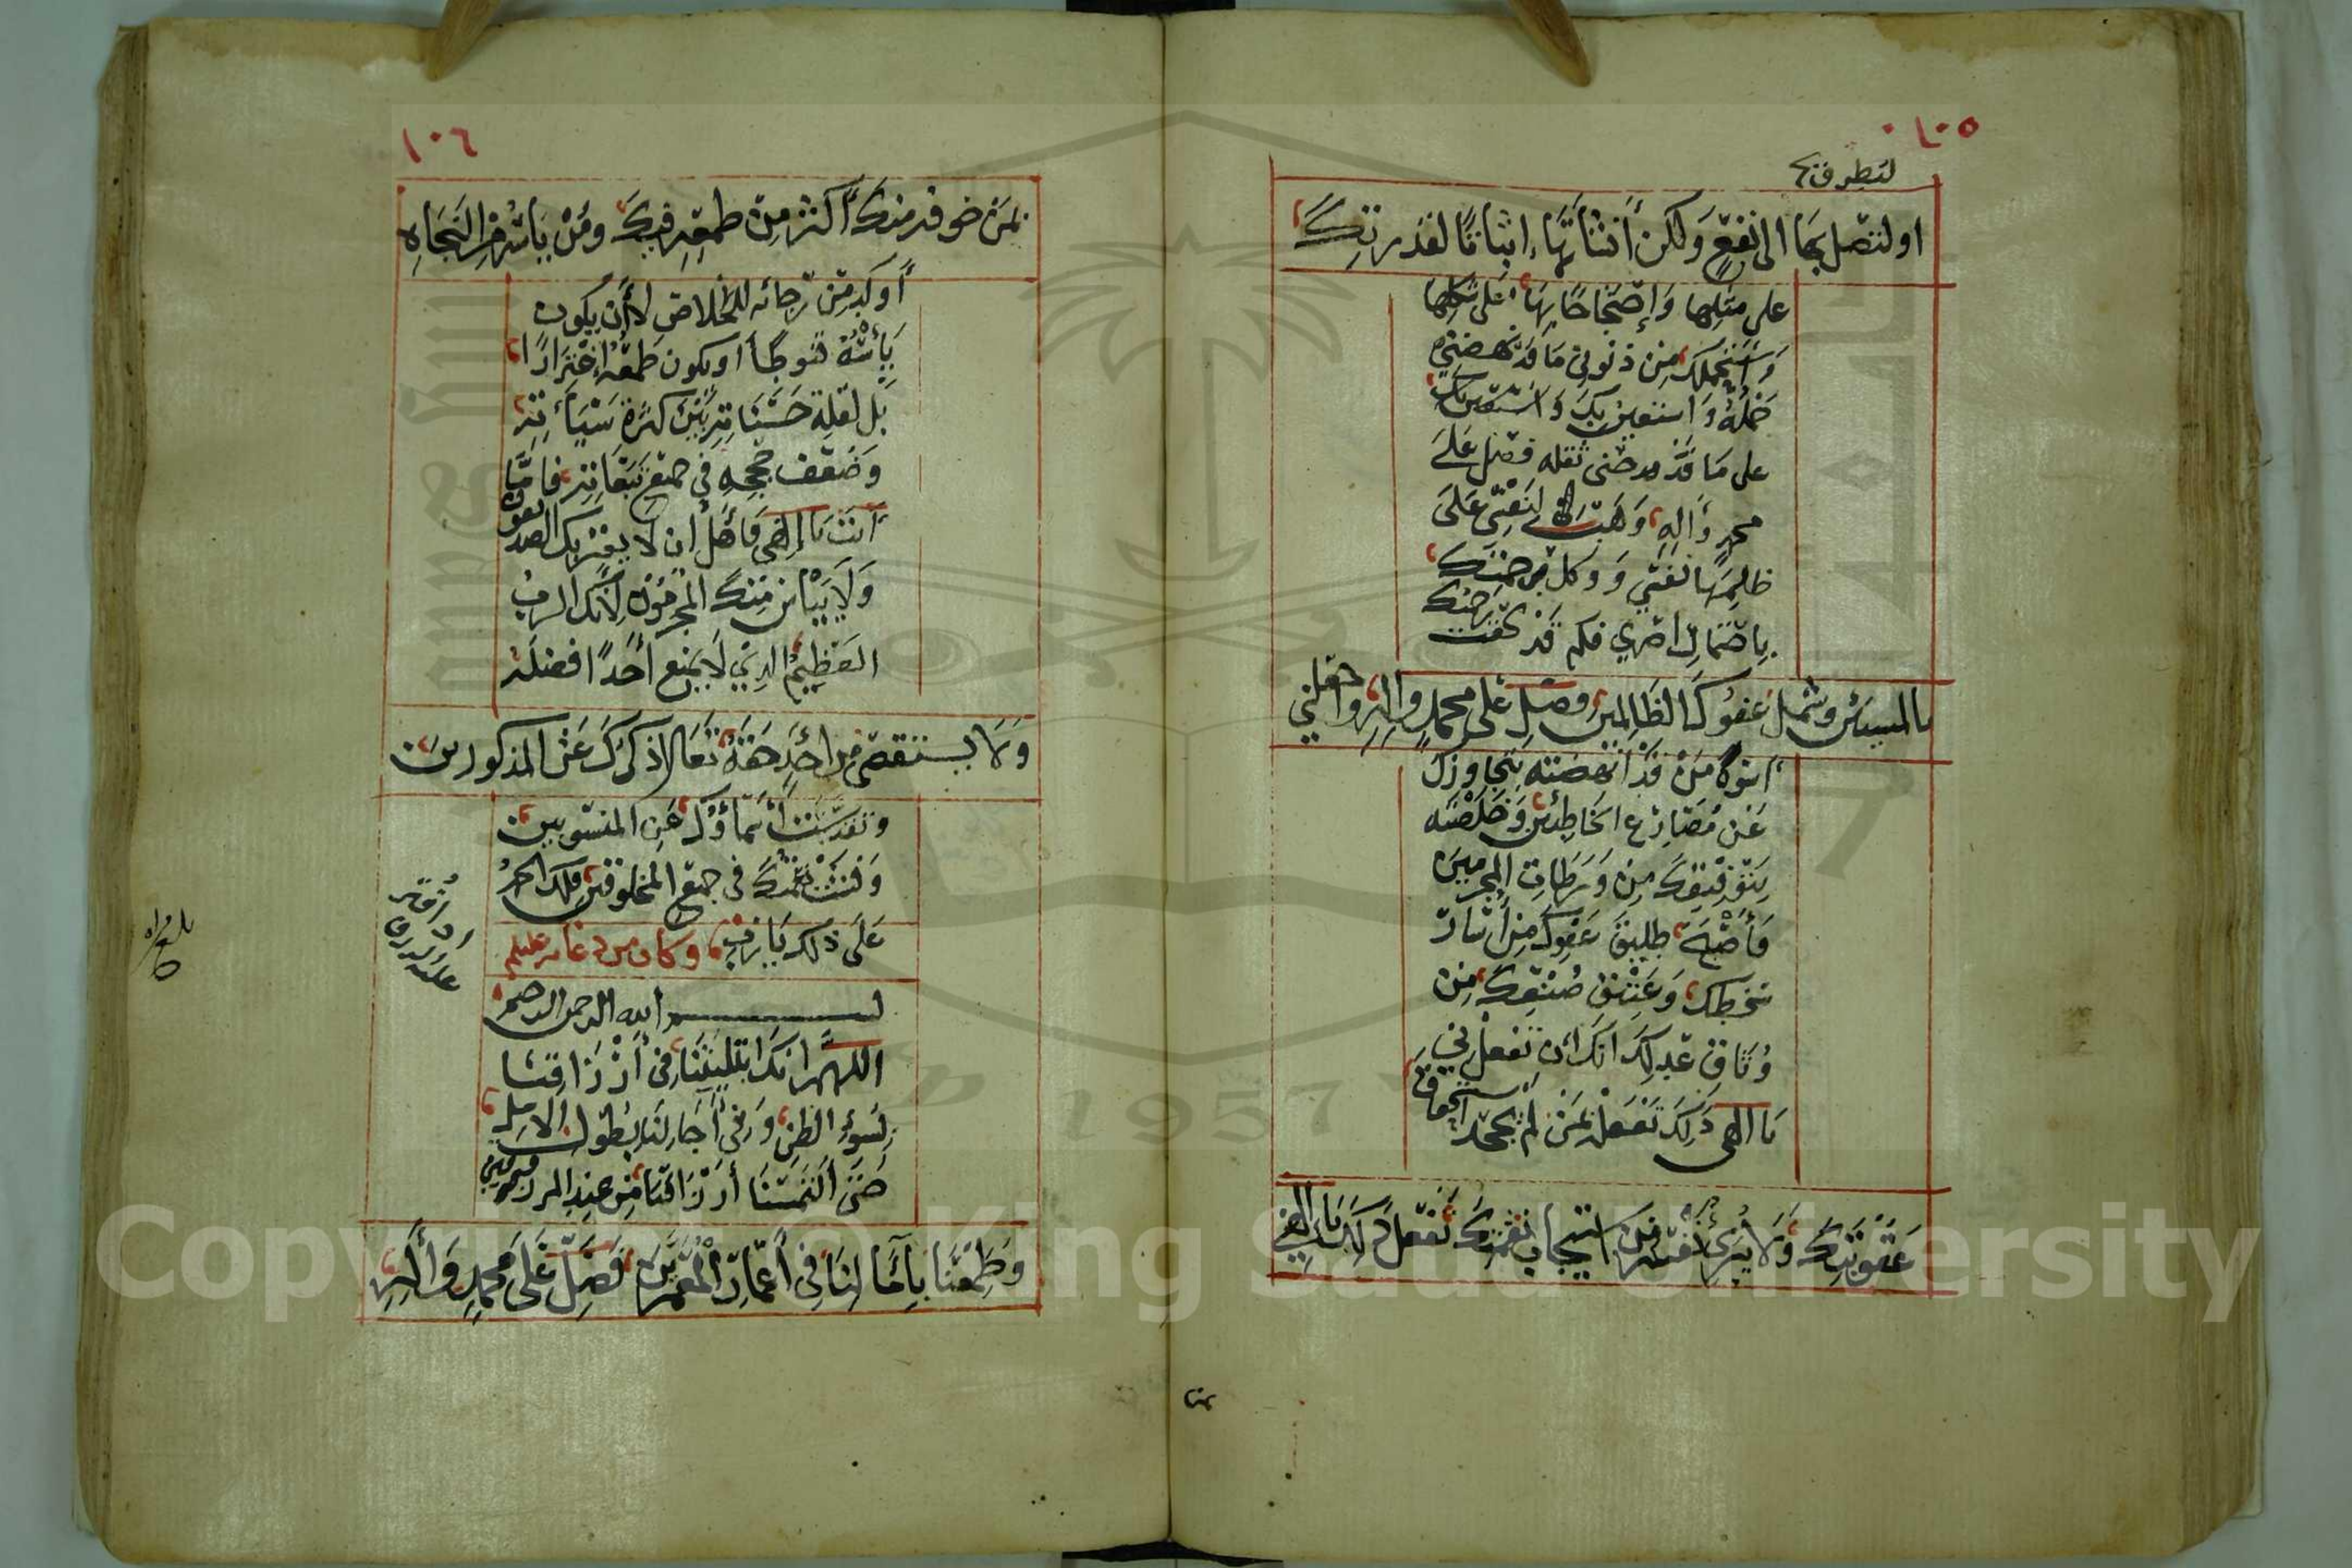 ١٠٥
لتطرق بها
او لتتصل بها الى نفع ولكن أنشأتها اثباتا لقدرتك
على مثلها وإحتجاجا بها على شكلها
وأستحملك من ذنوبي ما قد بهضني
حمله وأستعين بك
على ما قد فدحني ثقله فصل على
محمد وآله وهب لنفسي على
ظلمها نفسي ووكل رحمتك
باحتمال اصري فكم قد لحقت رحمتك
بالمسيئين وشمل عفوك الظالمين فصل على محمد وآله واجعلني
اسوة من قد أنهضته بتجاوزك
عن مصارع الخاطئين وخلصته
بتوفيقك من ورطات المجرمين
فأصبح طليق عفوك من أسار
سخطك وعتيق صنعك من
وثاق عدلك انك ان تفعل
يا الهي ذلك تفعله بمن لم يجحد استحقاق
عقوبتك ولا يبرئ نفسه من استيجاب نقمتك تفعل ذلك يا الهي
بمن
١٠٦
بمن خوفه منك أكثر من طمعه فيك ومن يأسه من النجاه
أوكد من رجائه للخلاص لا أن يكون
يأسه قنوطا او يكون طمعه إغترارا
بل لقلة حسناته بين كثرة سيأته
وضعف حججه في جميع تبعاته فاما
أنت يا الهي فأهل ان لا يغتر بك الصديقون
ولا ييأس منك المجرمون لأنك الرب
العظيم الذي لا يمنع أحدا فضله
ولا يستقصي من احد حقه تعالا ذكرك عن المذكورين
وتقدست أسماؤك عن المنسوبين
وفشت نعمتك في جميع المخلوقين فلك الحمد
على ذلك يا رب وكان من دعائه عليلم
بسم الله الرحمن الرحيم
اللهم انك ابتليتنا في أرزاقنا
بسوء الظن وفي أجالنا بطول الامل
حتى التمسنا أرزاقنا من عند المرزوقين
وطمعنا بآمالنا في أعمار المعمرين فصل على محمد وآله
إذا قتر
عليه الرزق